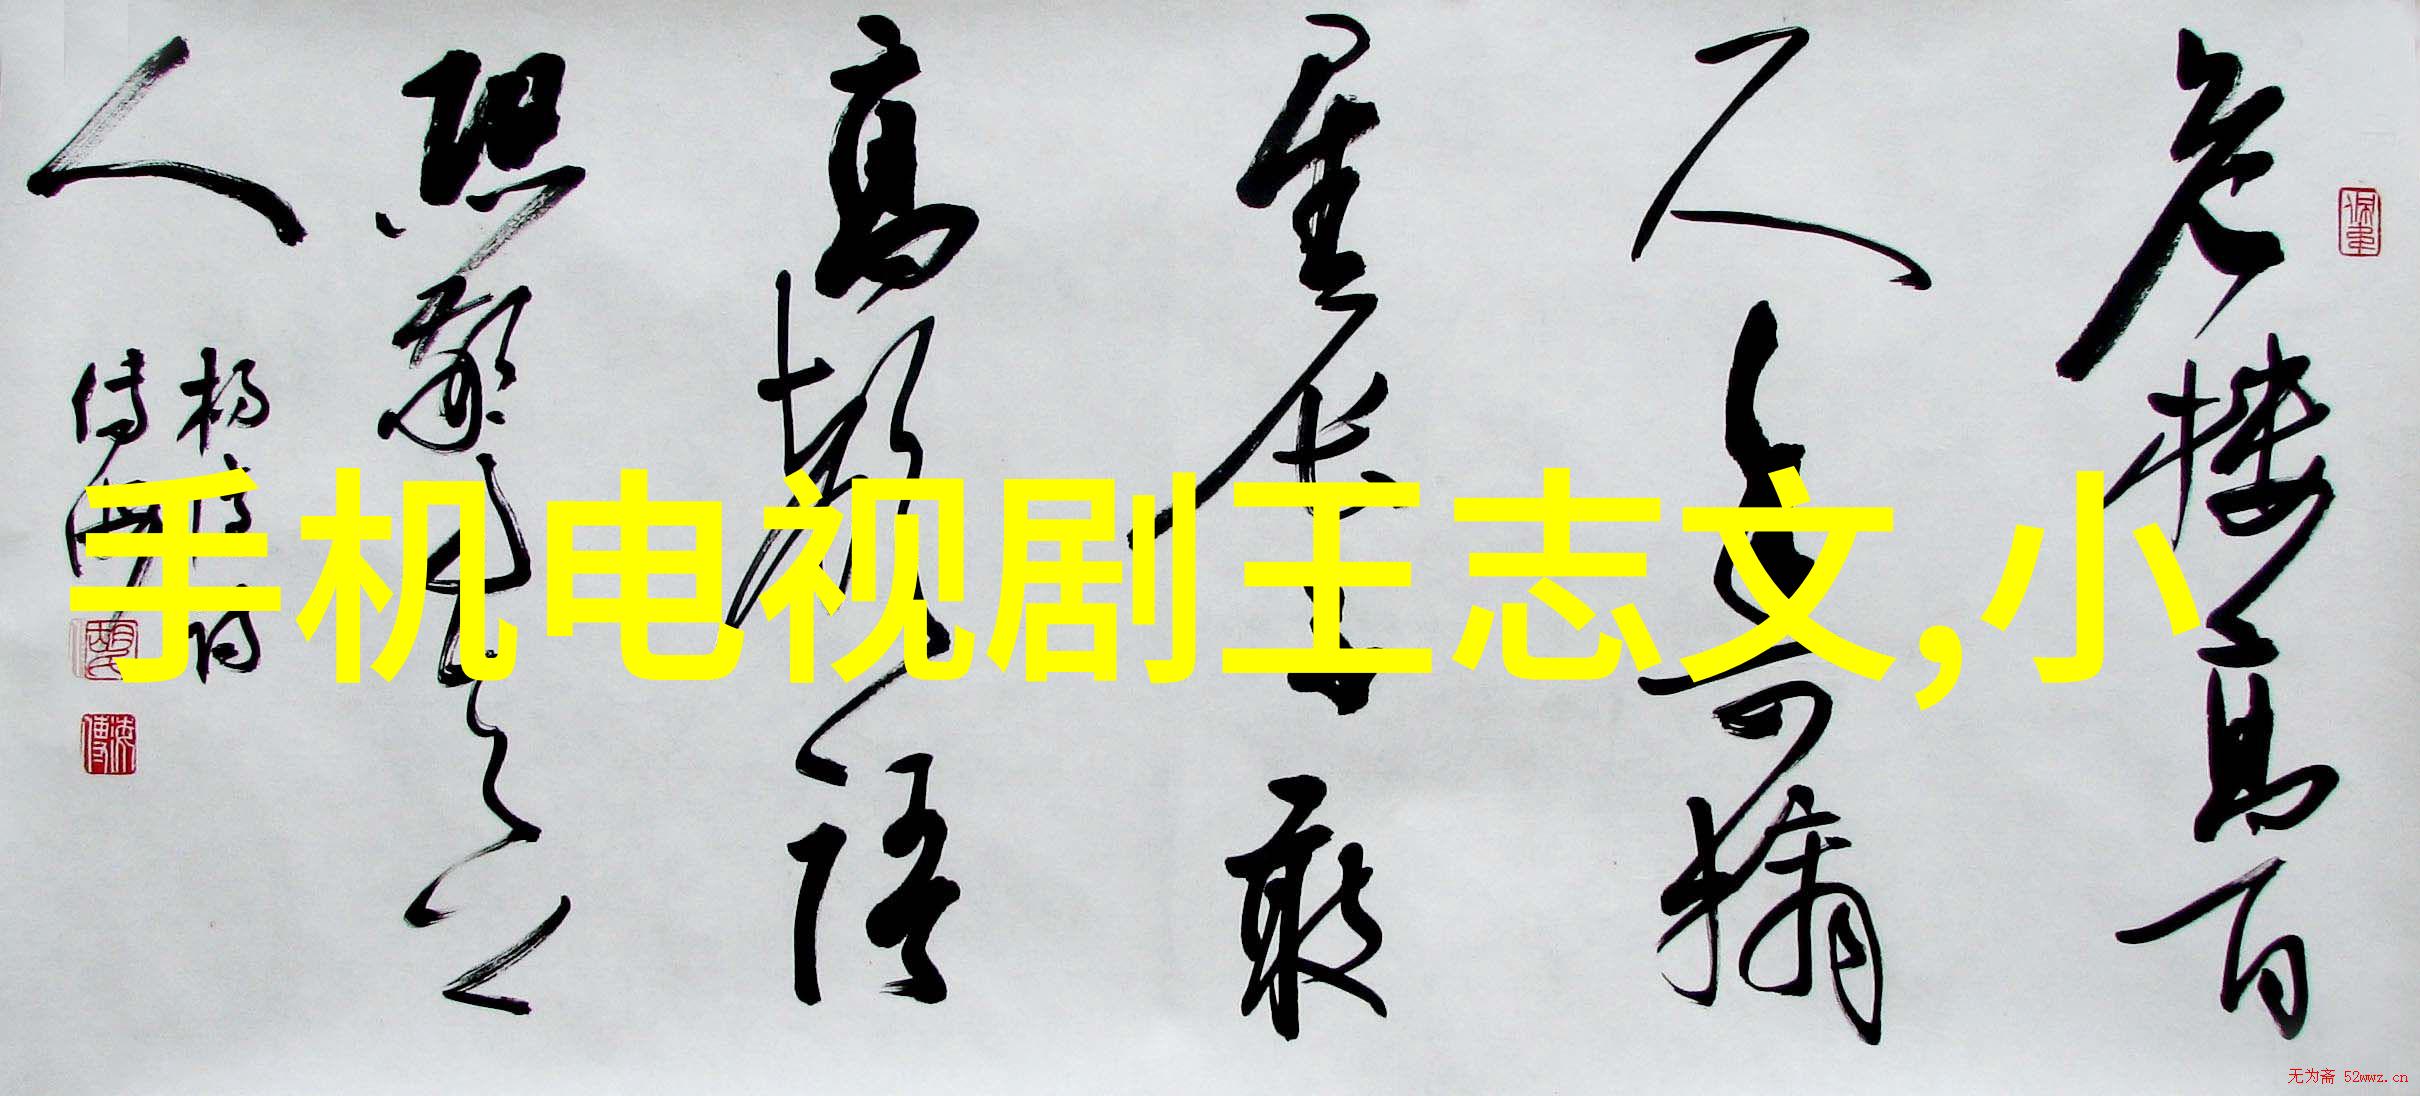 危楼高百
尺手可摘
星辰不敢
高声语
恐惊天上
人
杨信时
傅海
手机电视剧王志文,小
无为斋 52wwz.cn